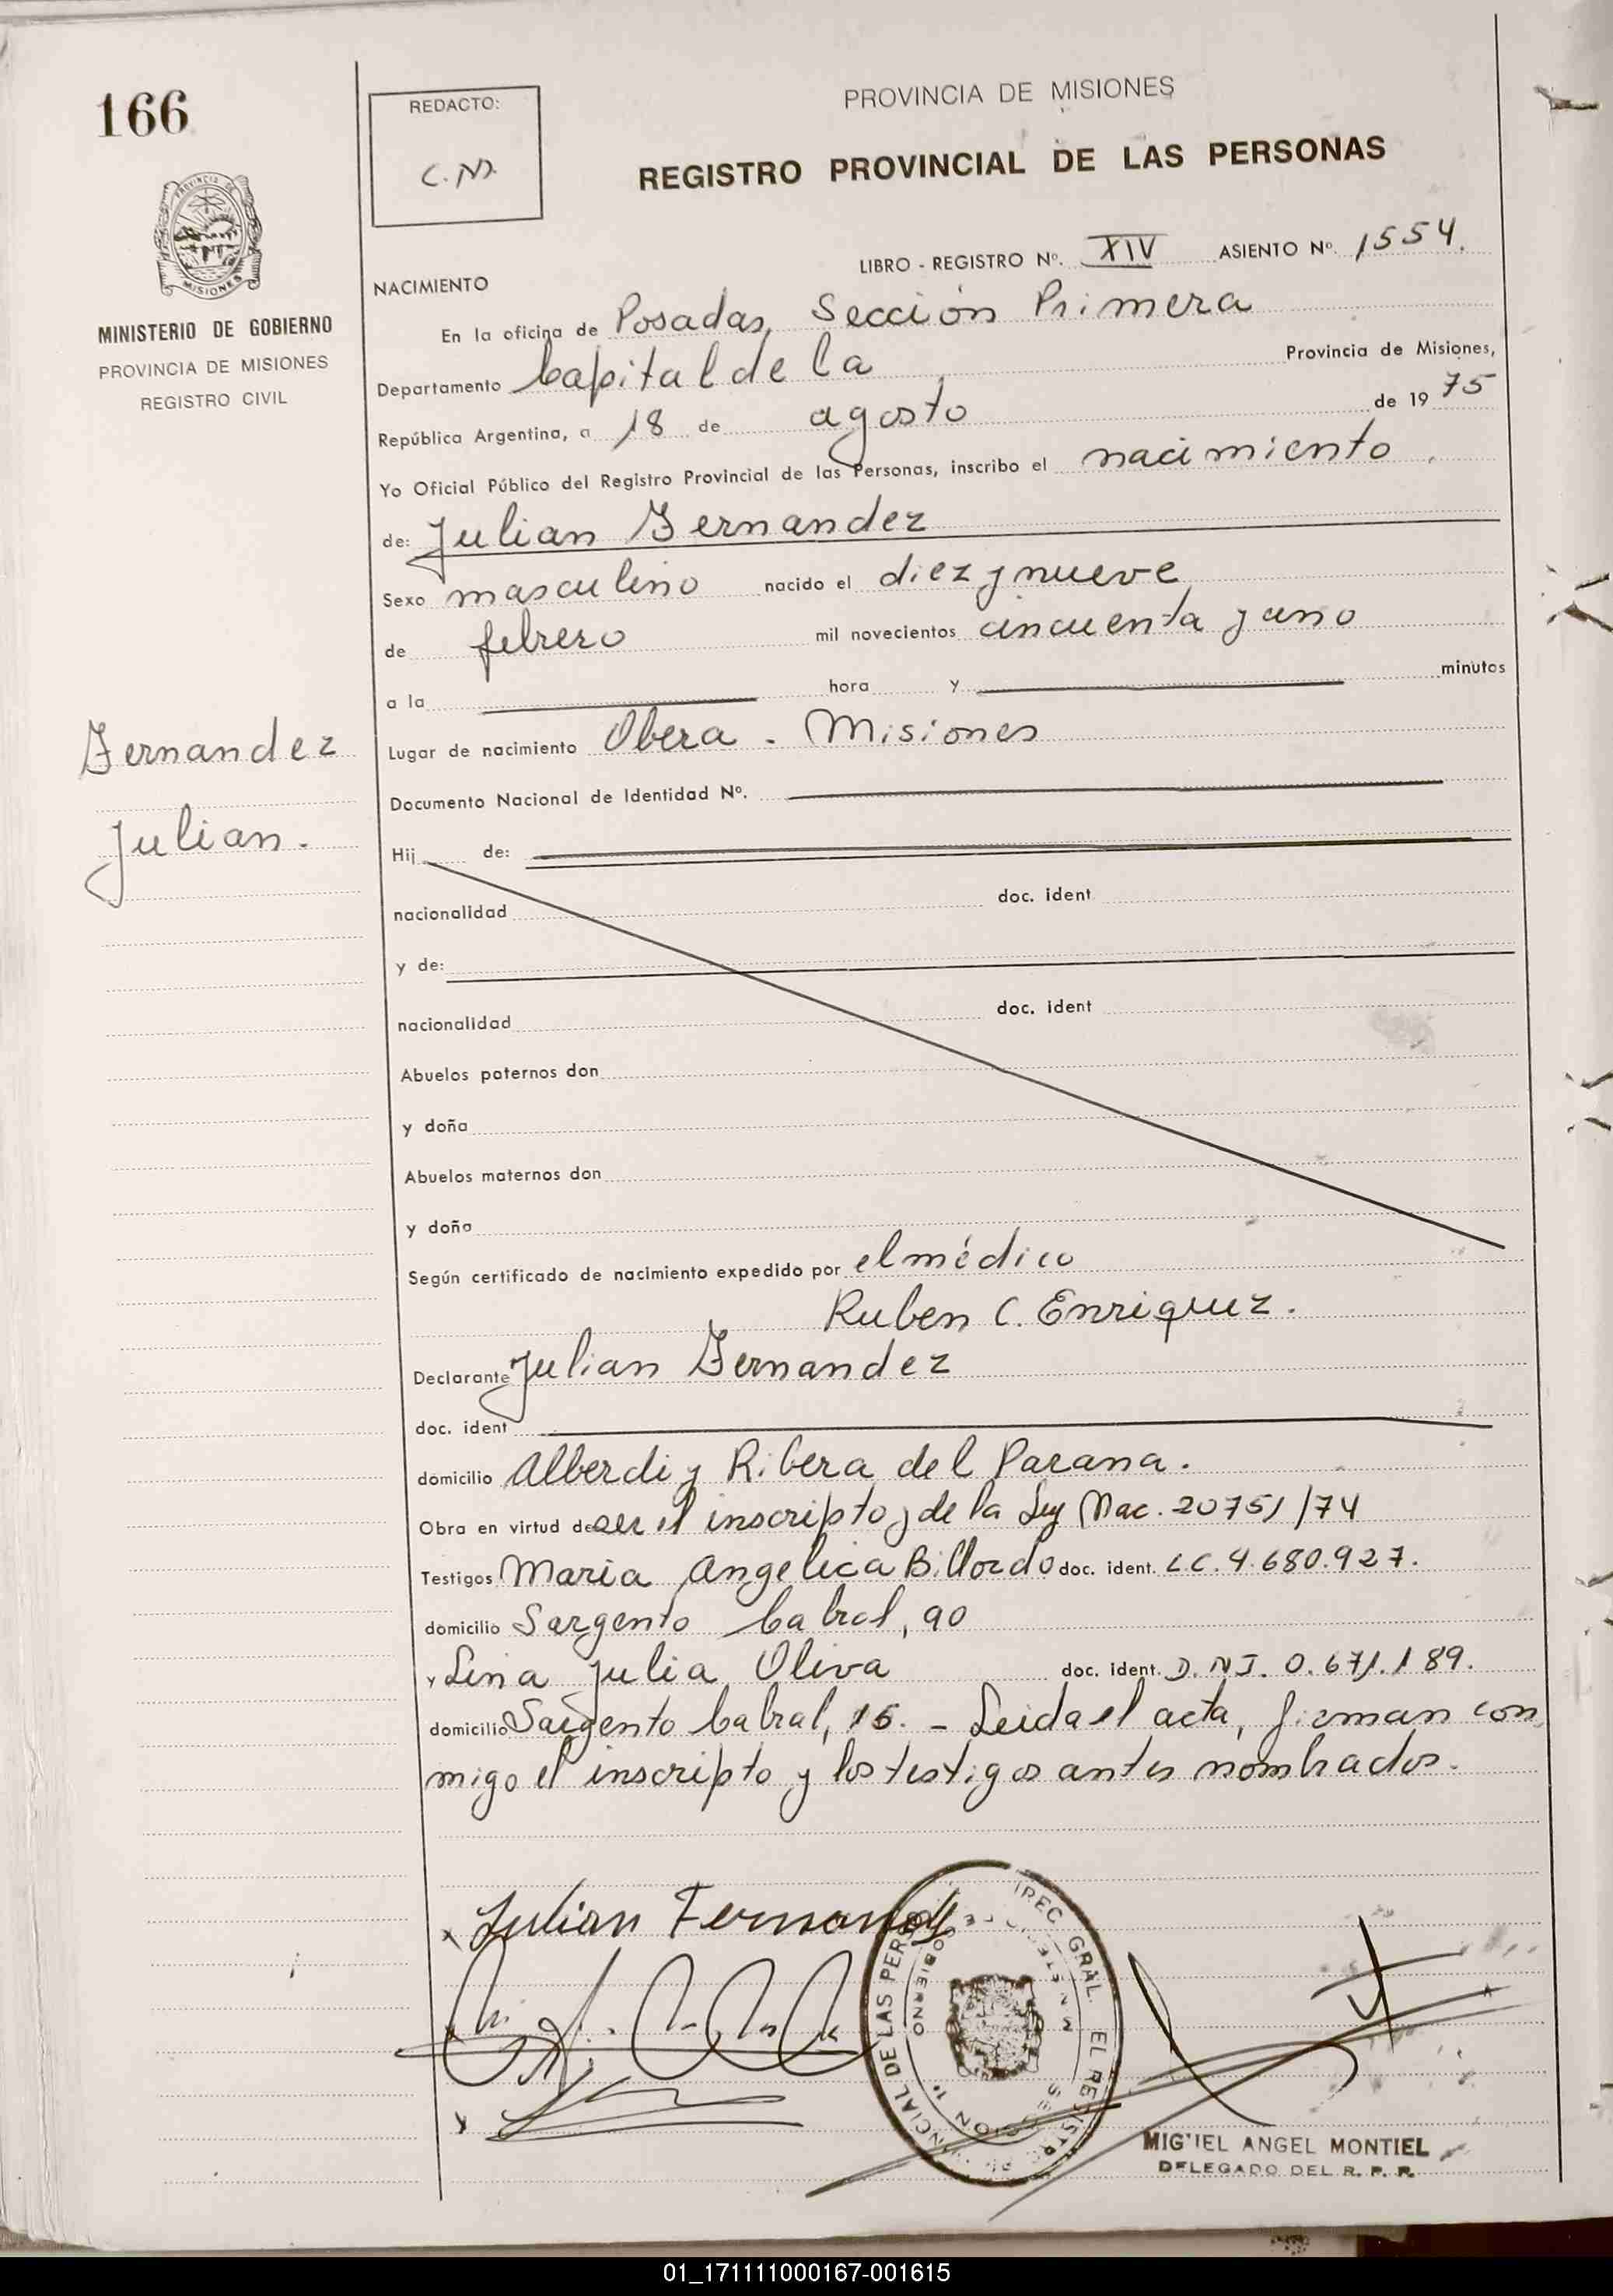 166
REDACTO:
C.N.
PROVINCIA DE MISIONES
REGISTRO PROVINCIAL DE LAS PERSONAS
LIBRO - REGISTRO Nº. XIV ASIENTO Nº. 1554.
PROVINCIA DE MISIONES
MINISTERIO DE GOBIERNO
PROVINCIA DE MISIONES
REGISTRO CIVIL
NACIMIENTO
En la oficina de Posadas, Sección Primera
Departamento Capital de la Provincia de Misiones,
República Argentina, a 18 de agosto de 1975
Yo Oficial Público del Registro Provincial de las Personas, inscribo el nacimiento
de: Julian Fernandez
Sexo masculino nacido el diez y nueve
de febrero mil novecientos cincuenta y uno
a la hora y minutos
Fernandez
Julian.
Lugar de nacimiento Obera - Misiones
Documento Nacional de Identidad Nº.
Hij de:
nacionalidad doc. ident
y de:
nacionalidad doc. ident
Abuelos paternos don
y doña
Abuelos maternos don
y doña
Según certificado de nacimiento expedido por el médico
Ruben C. Enriquez.
Declarante Julian Fernandez
doc. ident
domicilio Alberdi y Ribera del Parana.
Obra en virtud de ser el inscripto y de la Ley Nac. 20751/74
Testigos Maria Angelica Billordo doc. ident. L.C. 4.680.927.
domicilio Sargento Cabral, 90
y Lina Julia Oliva doc. ident. D.N.I. 0.671.189.
domicilio Sargento Cabral, 15. - Leida el acta, firman con
migo el inscripto y los testigos antes nombrados.
x Julian Fernandez
MIGUEL ANGEL MONTIEL
DELEGADO DEL R. P. P.
01_171111000167-001615